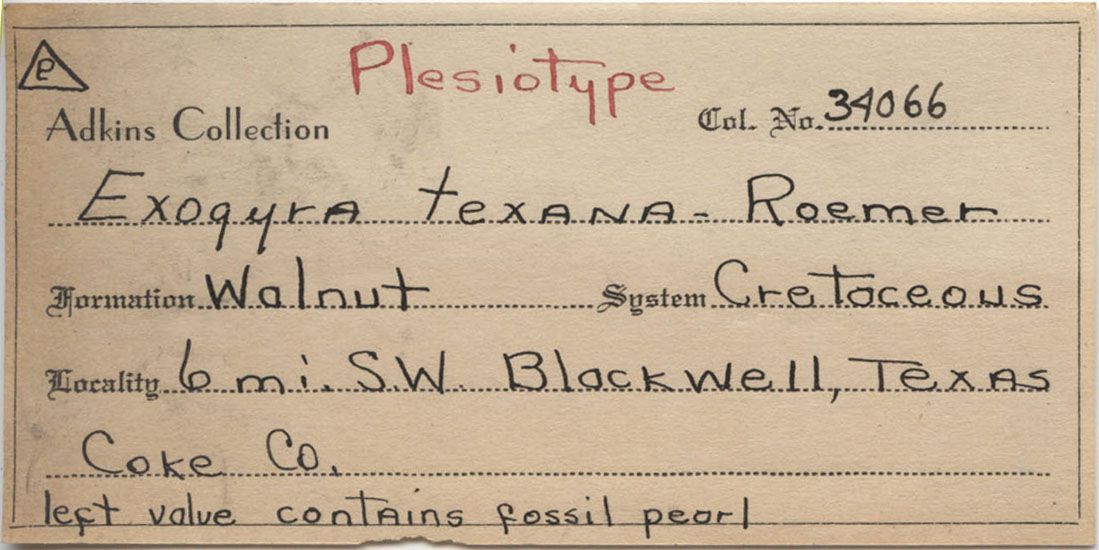 P Plesiotype
Adkins Collection Col. No. 34066
Exogyra texana - Roemer
Formation Walnut System Cretaceous
Locality 6 mi. S.W. Blackwell, Texas
Coke Co.
left valve contains fossil pearl